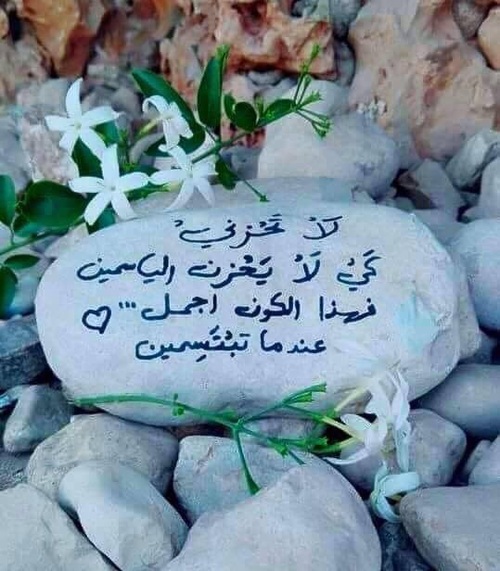 لَاْ تَحْزني
كَيْ لَاْ يَحْزن الياسمين
فهذا الكون اجمل ... ♡
عندما تبْتَسِمين